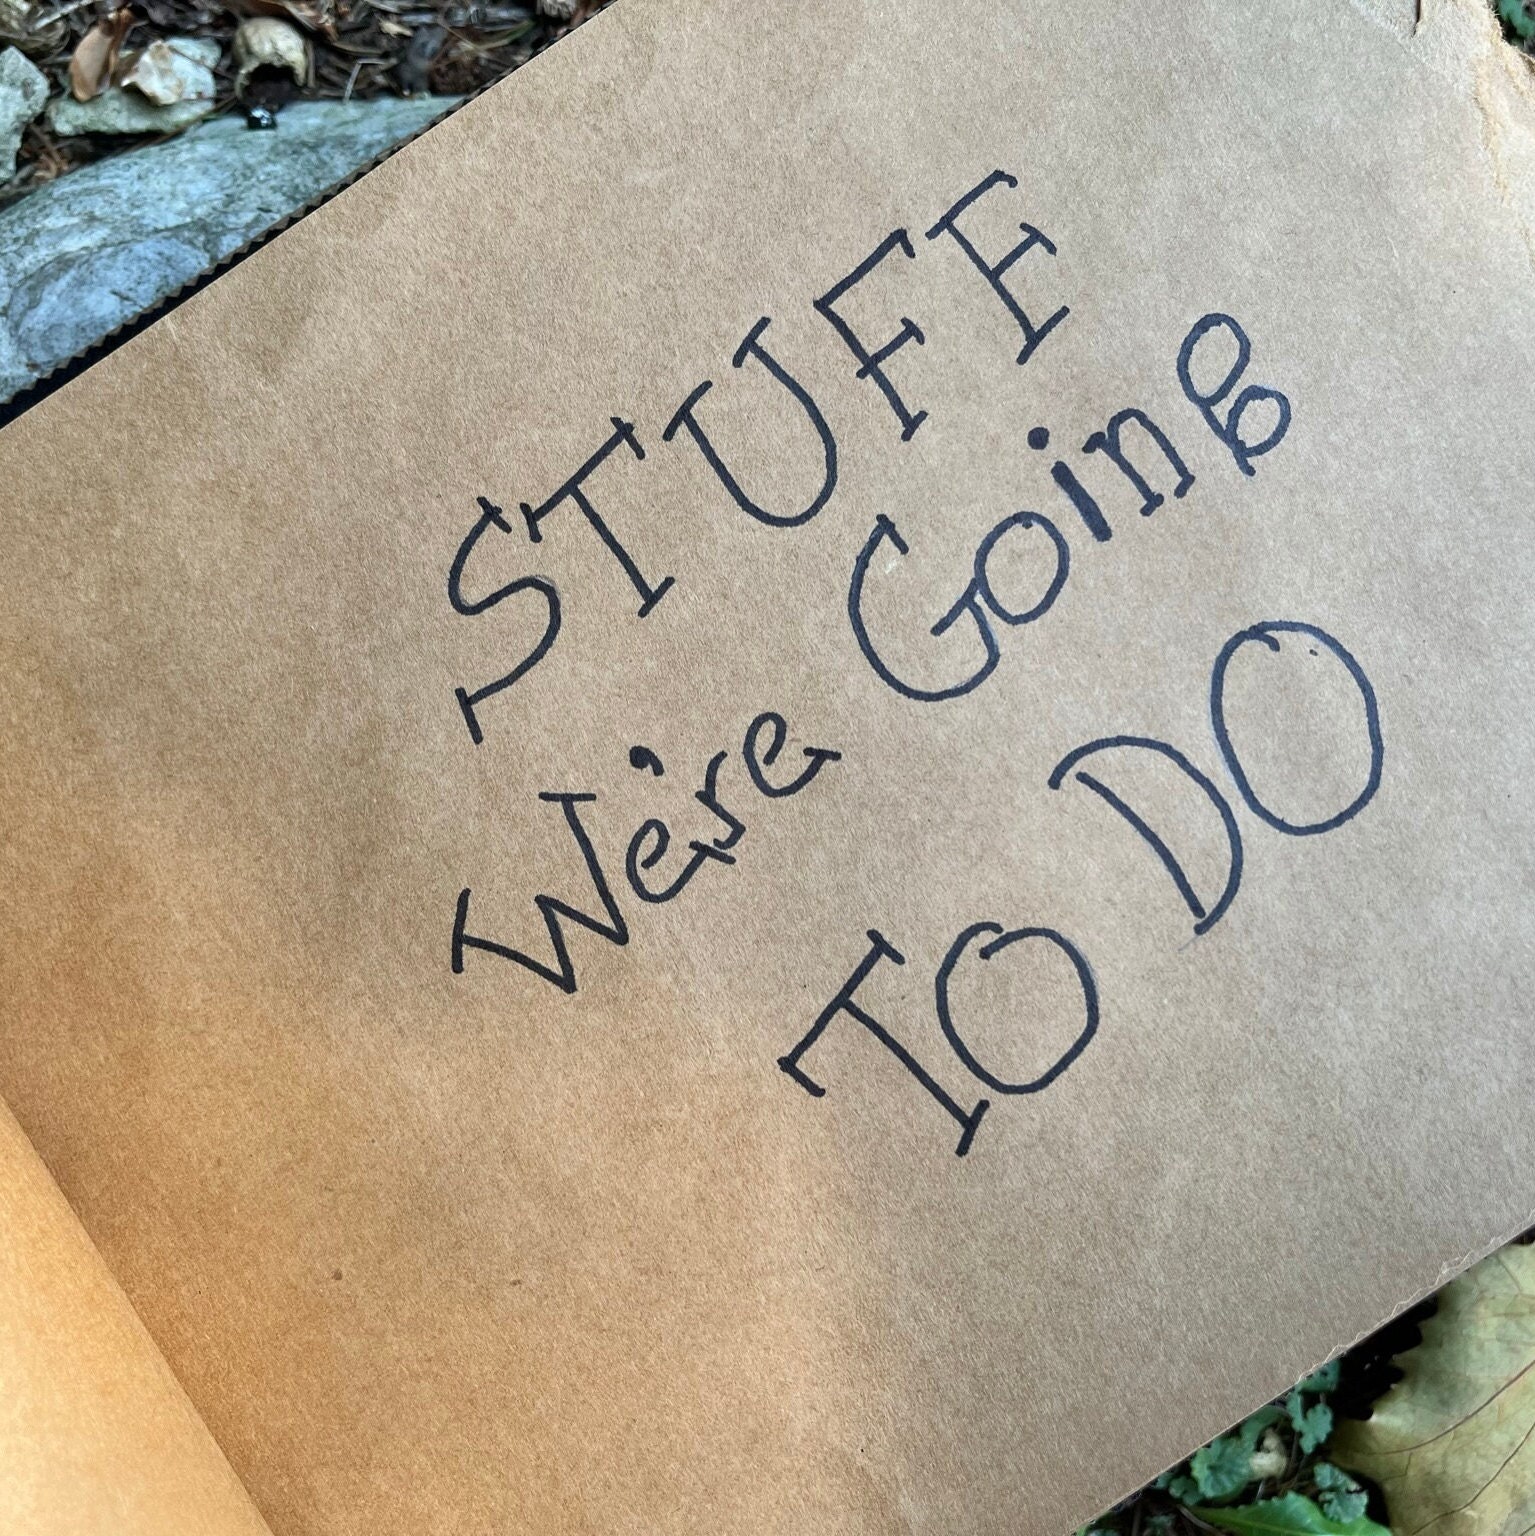 STUFF
We're Going
TO DO